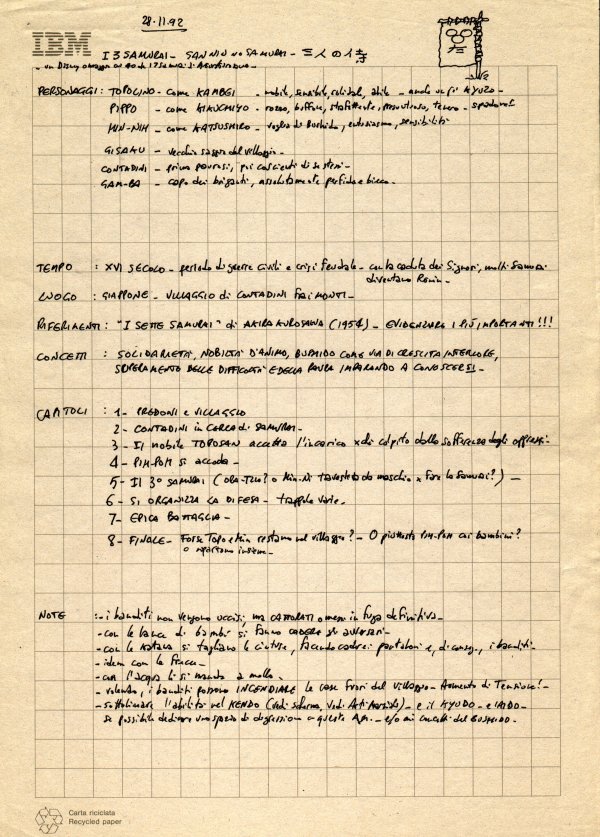 28.11.92
IBM
I 3 SAMURAI - SAN NIN NO SAMURAI - 三人の侍
- un Disney omaggio ai 40 di "I 7 Samurai" di Akira Kurosawa -
PERSONAGGI: TOPOLINO - come KAMBEI - nobile, sensibile, solidale, abile - anche un pò KYUZO -
PIPPO - come KIKUCHIYO - rozzo, buffone, strafottente, presuntuoso, tenero - spadaccil
MIN-NIH - come KATSUSHIRO - voglia di Bushido, entusiasmo, sensibilità
GISAKU - vecchio saggio del villaggio -
CONTADINI - prima paurosi, poi coscienti di se stessi -
GAM-BA - capo dei briganti, assolutamente perfido e bieco -
TEMPO : XVI SECOLO - periodo di guerre civili e crisi feudale - con la caduta dei Signori, molti Samurai
diventano Ronin -
LUOGO : GIAPPONE - VILLAGGIO di CONTADINI FRA I MONTI -
RIFERIMENTI: "I SETTE SAMURAI" di AKIRA KUROSAWA (1954) - EVIDENZIARE I PIÙ IMPORTANTI!!!
CONCETTI : SOLIDARIETÀ, NOBILTÀ D'ANIMO, BUSHIDO COME VIA DI CRESCITA INTERIORE,
SUPERAMENTO DELLE DIFFICOLTÀ E DELLA PAURA IMPARANDO A CONOSCERSI -
CAPITOLI : 1 - PREDONI e VILLAGGIO
2 - CONTADINI in CERCA di SAMURAI -
3 - Il nobile TOPOSAN accetta l'incarico xchè colpito dalla sofferenza degli oppressi -
4 - PIM-POM si accoda -
5 - Il 3° SAMURAI (ORA-TZU? o Min-Ni travestita da maschio x fare la Samurai?) -
6 - SI ORGANIZZA LA DIFESA - trappole varie -
7 - EPICA BATTAGLIA -
8 - FINALE - Forse Topo e Min restano nel villaggio? - O piuttosto PIM-POM coi bambini?
o ripartono insieme -
NOTE : - i banditi non vengono uccisi, ma CATTURATI o messi in fuga definitiva -
- con le lance di bambù si fanno CADERE gli avversari -
- con le KATANA si tagliano le cinture, facendo cadere i pantaloni e, di conseg., i banditi -
- idem con le frecce -
- con l'acqua li si manda a mollo -
- volendo, i banditi possono INCENDIARE le case fuori del villaggio - Aumento di Tensione! -
- sottolineare l'abilità nel KENDO (vedi scherma, vedi Arti Marziali) - e il KYUDO - e IAIDO -
se possibile dedicare uno spazio di digressione a queste A.M. - e/o ai concetti del BUSHIDO -
Carta riciclata
Recycled paper